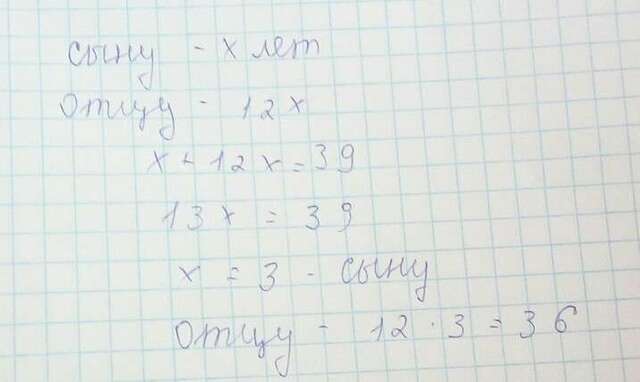 сыну - х лет
отцу - 12х
х + 12х = 39
13х = 39
х = 3 - сыну
отцу - 12 · 3 = 36